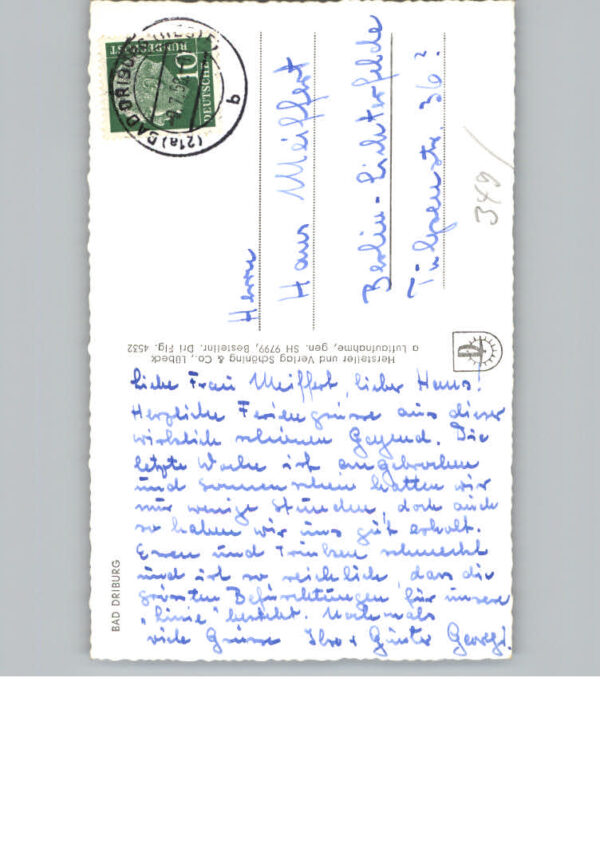 DEUTSCHE
BUNDESPOST
10
(21a) BAD DRIBURG (WESTF)
b
Herrn
Hans Meiffert
Berlin-Lichterfelde
Tulpenstr. 36?
349/
Hersteller und Verlag Schöning & Co., Lübeck
a Luftaufnahme, gen. SH 9799, Bestellnr. Dri Flg. 4532
BAD DRIBURG
Liebe Frau Meiffert, lieber Hans!
Herzliche Feriengrüsse aus dieser
wirklich schönen Gegend. Die
letzte Woche ist angebrochen
und Sonnenschein hatten wir
nur wenige Stunden, doch auch
so haben wir uns gut erholt.
Essen und Trinken schmeckt
und ist so reichlich, dass die
grössten Befürchtungen für unsere
"Linie" besteht. Nochmals
viele Grüsse Ilse + Günter Georgi.